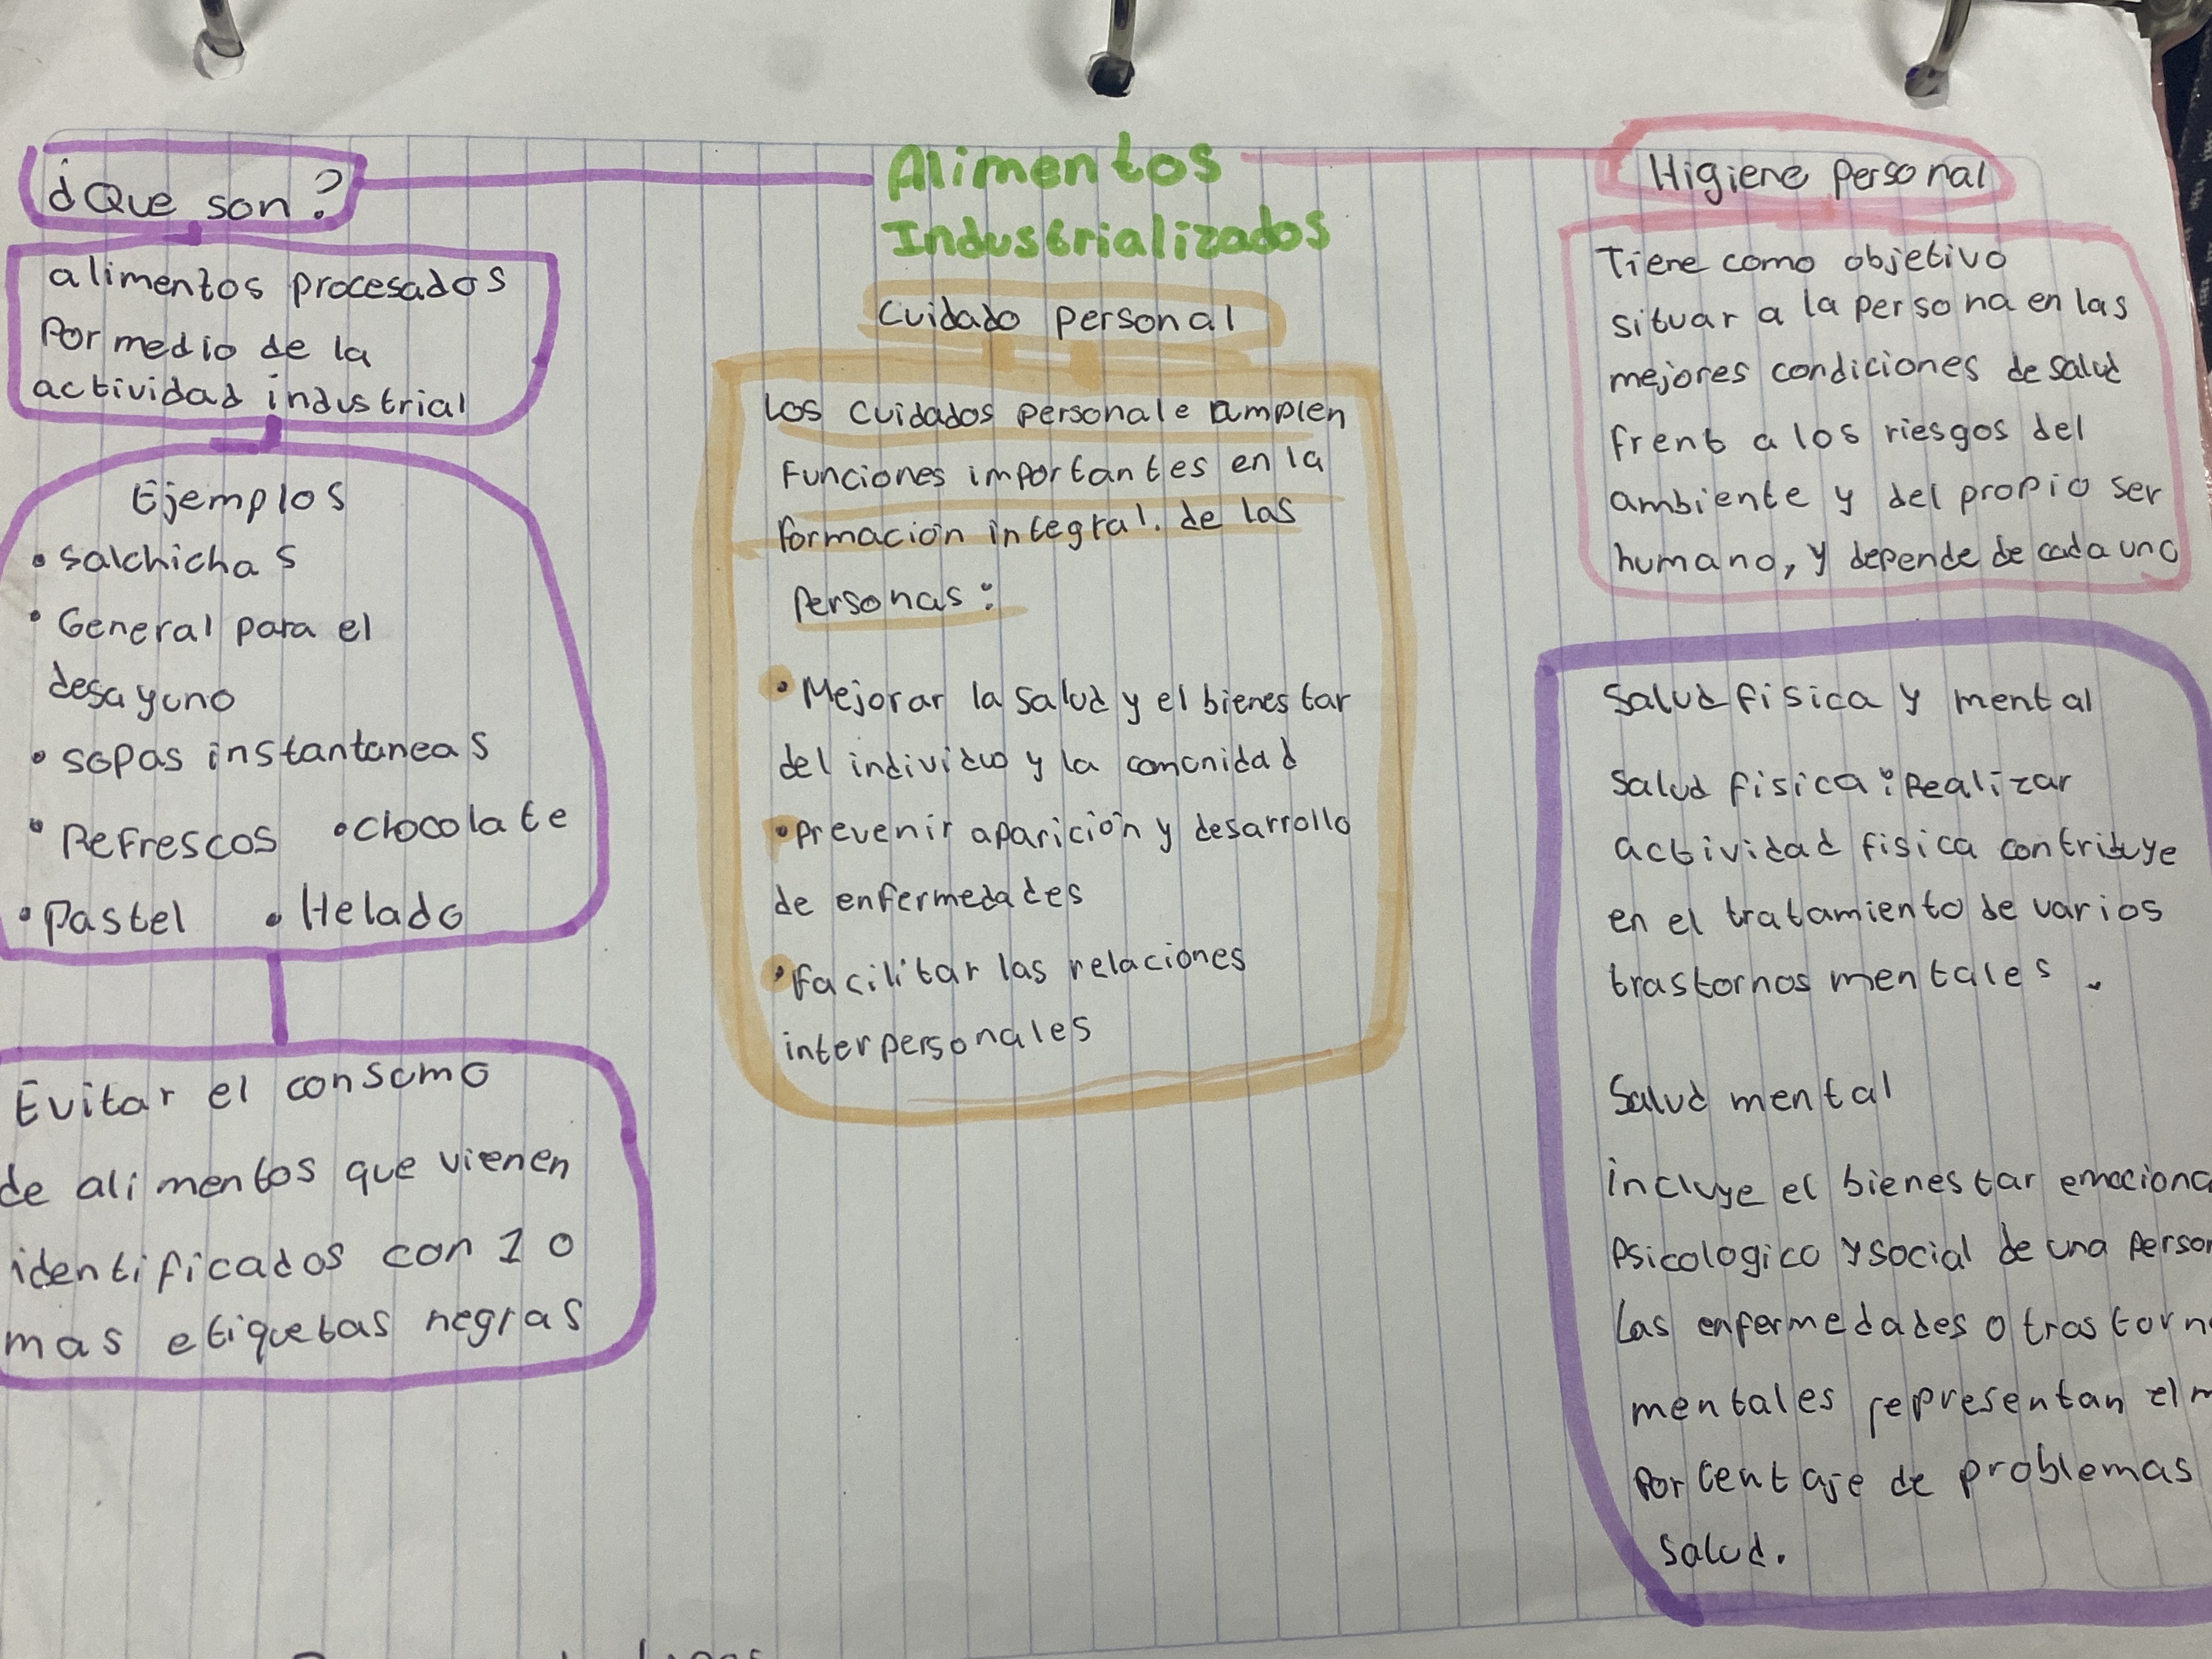 ¿Que son?
alimentos procesados
Por medio de la
actividad industrial
Ejemplos
• Salchichas
• General para el
desayuno
• sopas instantaneas
• Refrescos • chocolate
• Pastel • Helado
Evitar el consumo
de alimentos que vienen
identificados con 1 o
mas etiquetas negras
Alimentos
Industrializados
Cuidado personal
Los cuidados personale cumplen
Funciones importantes en la
formación integral. de las
Personas:
• Mejorar la salud y el bienestar
del individuo y la comunidad
• Prevenir aparición y desarrollo
de enfermedades
• Facilitar las relaciones
interpersonales
Higiene Personal
Tiene como objetivo
situar a la persona en las
mejores condiciones de salud
frent a los riesgos del
ambiente y del propio ser
humano, y depende de cada uno
Salud fisica y mental
Salud fisica: Realizar
actividad fisica contribuye
en el tratamiento de varios
trastornos mentales.
Salud mental
incluye el bienestar
Psicologico y social de una
Las enfermedades o
mentales representan el
Porcentaje de problemas
Salud.